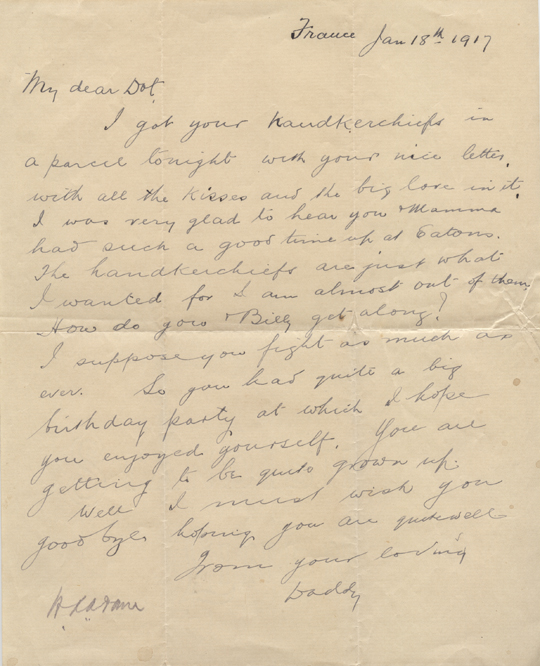 France Jan 18th 1917
My dear Dot
I got your handkerchiefs in
a parcel tonight with your nice letter,
with all the kisses and the big love in it.
I was very glad to hear you & Mamma
had such a good time up at Eatons.
The handkerchiefs are just what
I wanted for I am almost out of them
How do you & Billy get along?
I suppose you fight as much as
ever. So you had quite a big
birthday party at which I hope
you enjoyed yourself. You are
getting to be quite grown up.
Well I must wish you
goodbye hoping you are quite well
From your loving
Daddy